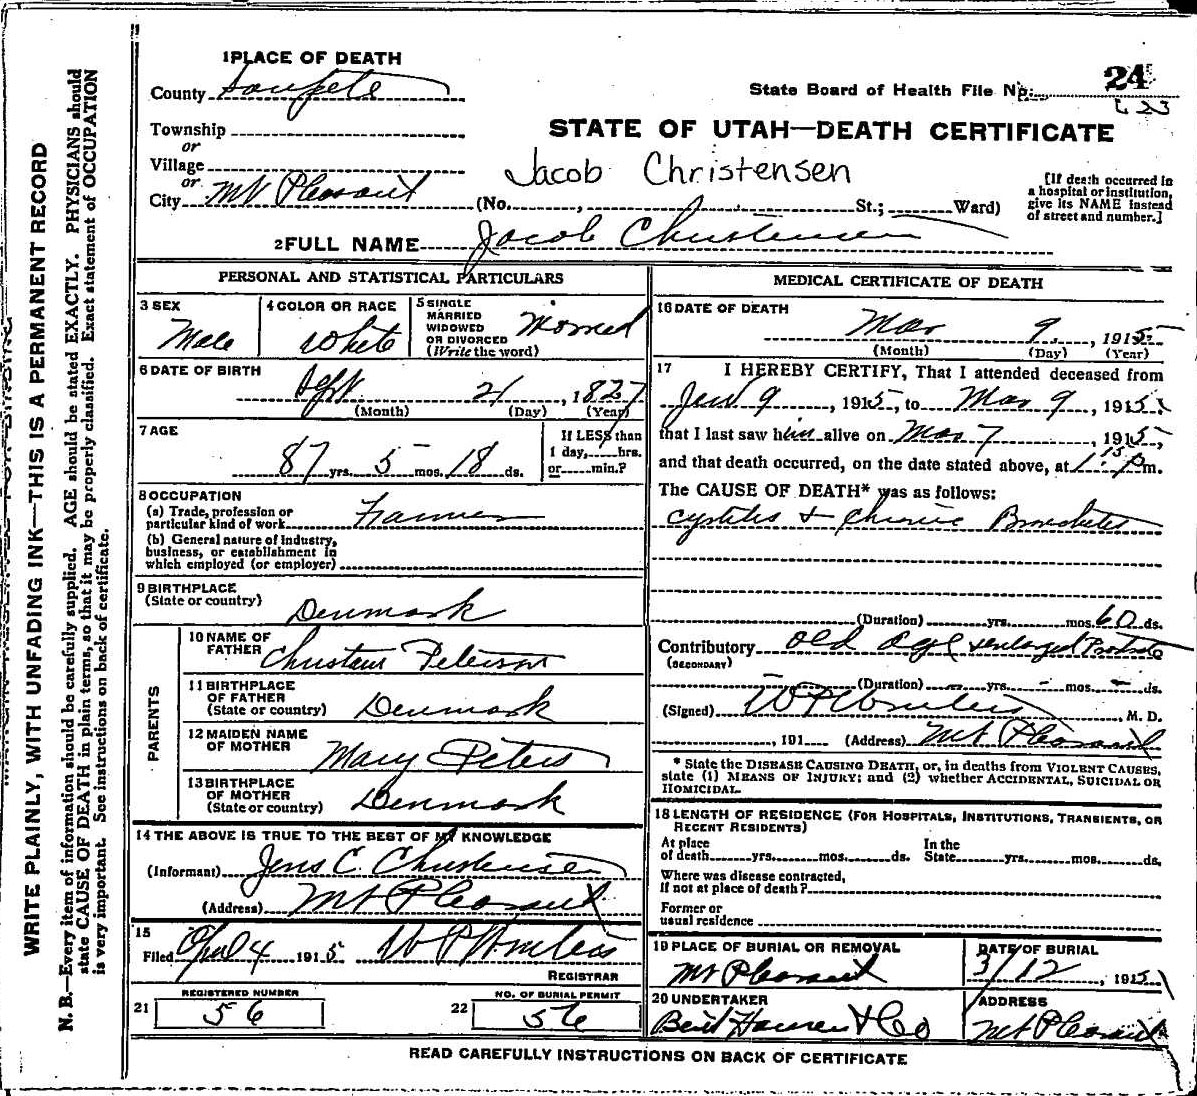 1 PLACE OF DEATH
County Sanpete
Township
or
Village
or
City Mt Pleasant
State Board of Health File No. 24
STATE OF UTAH—DEATH CERTIFICATE
Jacob Christensen
(No. , St.; Ward)
[If death occurred in a hospital or institution, give its NAME instead of street and number.]
2 FULL NAME Jacob Christensen
PERSONAL AND STATISTICAL PARTICULARS
3 SEX
Male
4 COLOR OR RACE
White
5 SINGLE
MARRIED
WIDOWED
OR DIVORCED
(Write the word)
Married
6 DATE OF BIRTH
Sept 21, 1827
(Month) (Day) (Year)
7 AGE
87 yrs. 5 mos. 18 ds.
If LESS than
1 day, hrs.
or min.?
8 OCCUPATION
(a) Trade, profession or
particular kind of work Farmer
(b) General nature of industry,
business, or establishment in
which employed (or employer)
9 BIRTHPLACE
(State or country)
Denmark
PARENTS
10 NAME OF
FATHER
Peterson
11 BIRTHPLACE
OF FATHER
(State or country) Denmark
12 MAIDEN NAME
OF MOTHER Mary Peters
13 BIRTHPLACE
OF MOTHER
(State or country) Denmark
14 THE ABOVE IS TRUE TO THE BEST OF MY KNOWLEDGE
(Informant) Jens C. Christensen
(Address) Mt Pleasant
15
Filed April 4 1915 W P Winters
REGISTRAR
21 REGISTERED NUMBER
56
22 NO. OF BURIAL PERMIT
56
MEDICAL CERTIFICATE OF DEATH
16 DATE OF DEATH
Mar 9, 1915
(Month) (Day) (Year)
17 I HEREBY CERTIFY, That I attended deceased from
Jan 9, 1915, to Mar 9, 1915,
that I last saw him alive on Mar 7, 1915,
and that death occurred, on the date stated above, at 1:15 Pm.
The CAUSE OF DEATH* was as follows:
Cystitis + Chronic Bronchitis
(Duration) yrs. mos. 60 ds.
Contributory old age & enlarged Prostate
(SECONDARY)
(Duration) — yrs. - mos. - ds.
(Signed) W P Winters, M. D.
, 191 (Address) Mt Pleasant
* State the DISEASE CAUSING DEATH, or, in deaths from VIOLENT CAUSES,
state (1) MEANS OF INJURY; and (2) whether ACCIDENTAL, SUICIDAL OR
HOMICIDAL.
18 LENGTH OF RESIDENCE (FOR HOSPITALS, INSTITUTIONS, TRANSIENTS, OR
RECENT RESIDENTS)
At place
of death yrs. mos. ds.
In the
State yrs. mos. ds.
Where was disease contracted,
if not at place of death?
Former or
usual residence
19 PLACE OF BURIAL OR REMOVAL
Mt Pleasant
DATE OF BURIAL
3/12, 1915
20 UNDERTAKER
Hansen & Co
ADDRESS
Mt Pleasant
READ CAREFULLY INSTRUCTIONS ON BACK OF CERTIFICATE
WRITE PLAINLY, WITH UNFADING INK—THIS IS A PERMANENT RECORD
N. B.—Every item of information should be carefully supplied. AGE should be stated EXACTLY. PHYSICIANS should
state CAUSE OF DEATH in plain terms, so that it may be properly classified. Exact statement of OCCUPATION
is very important. See instructions on back of certificate.